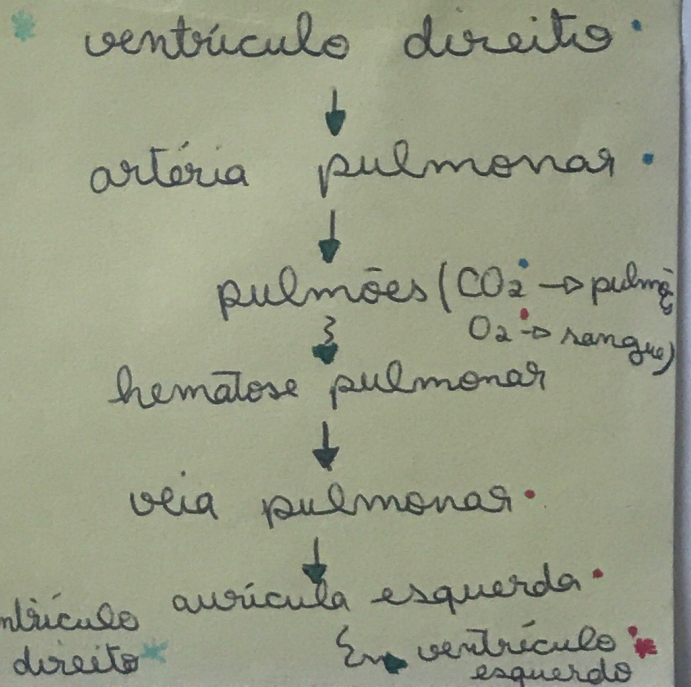 ventrículo direito
artéria pulmonar
pulmões (CO2 → pulmõ
O2 → sangue)
hematose pulmonar
veia pulmonar
aurícula esquerda
ntrículo
direito
ventrículo
esquerdo